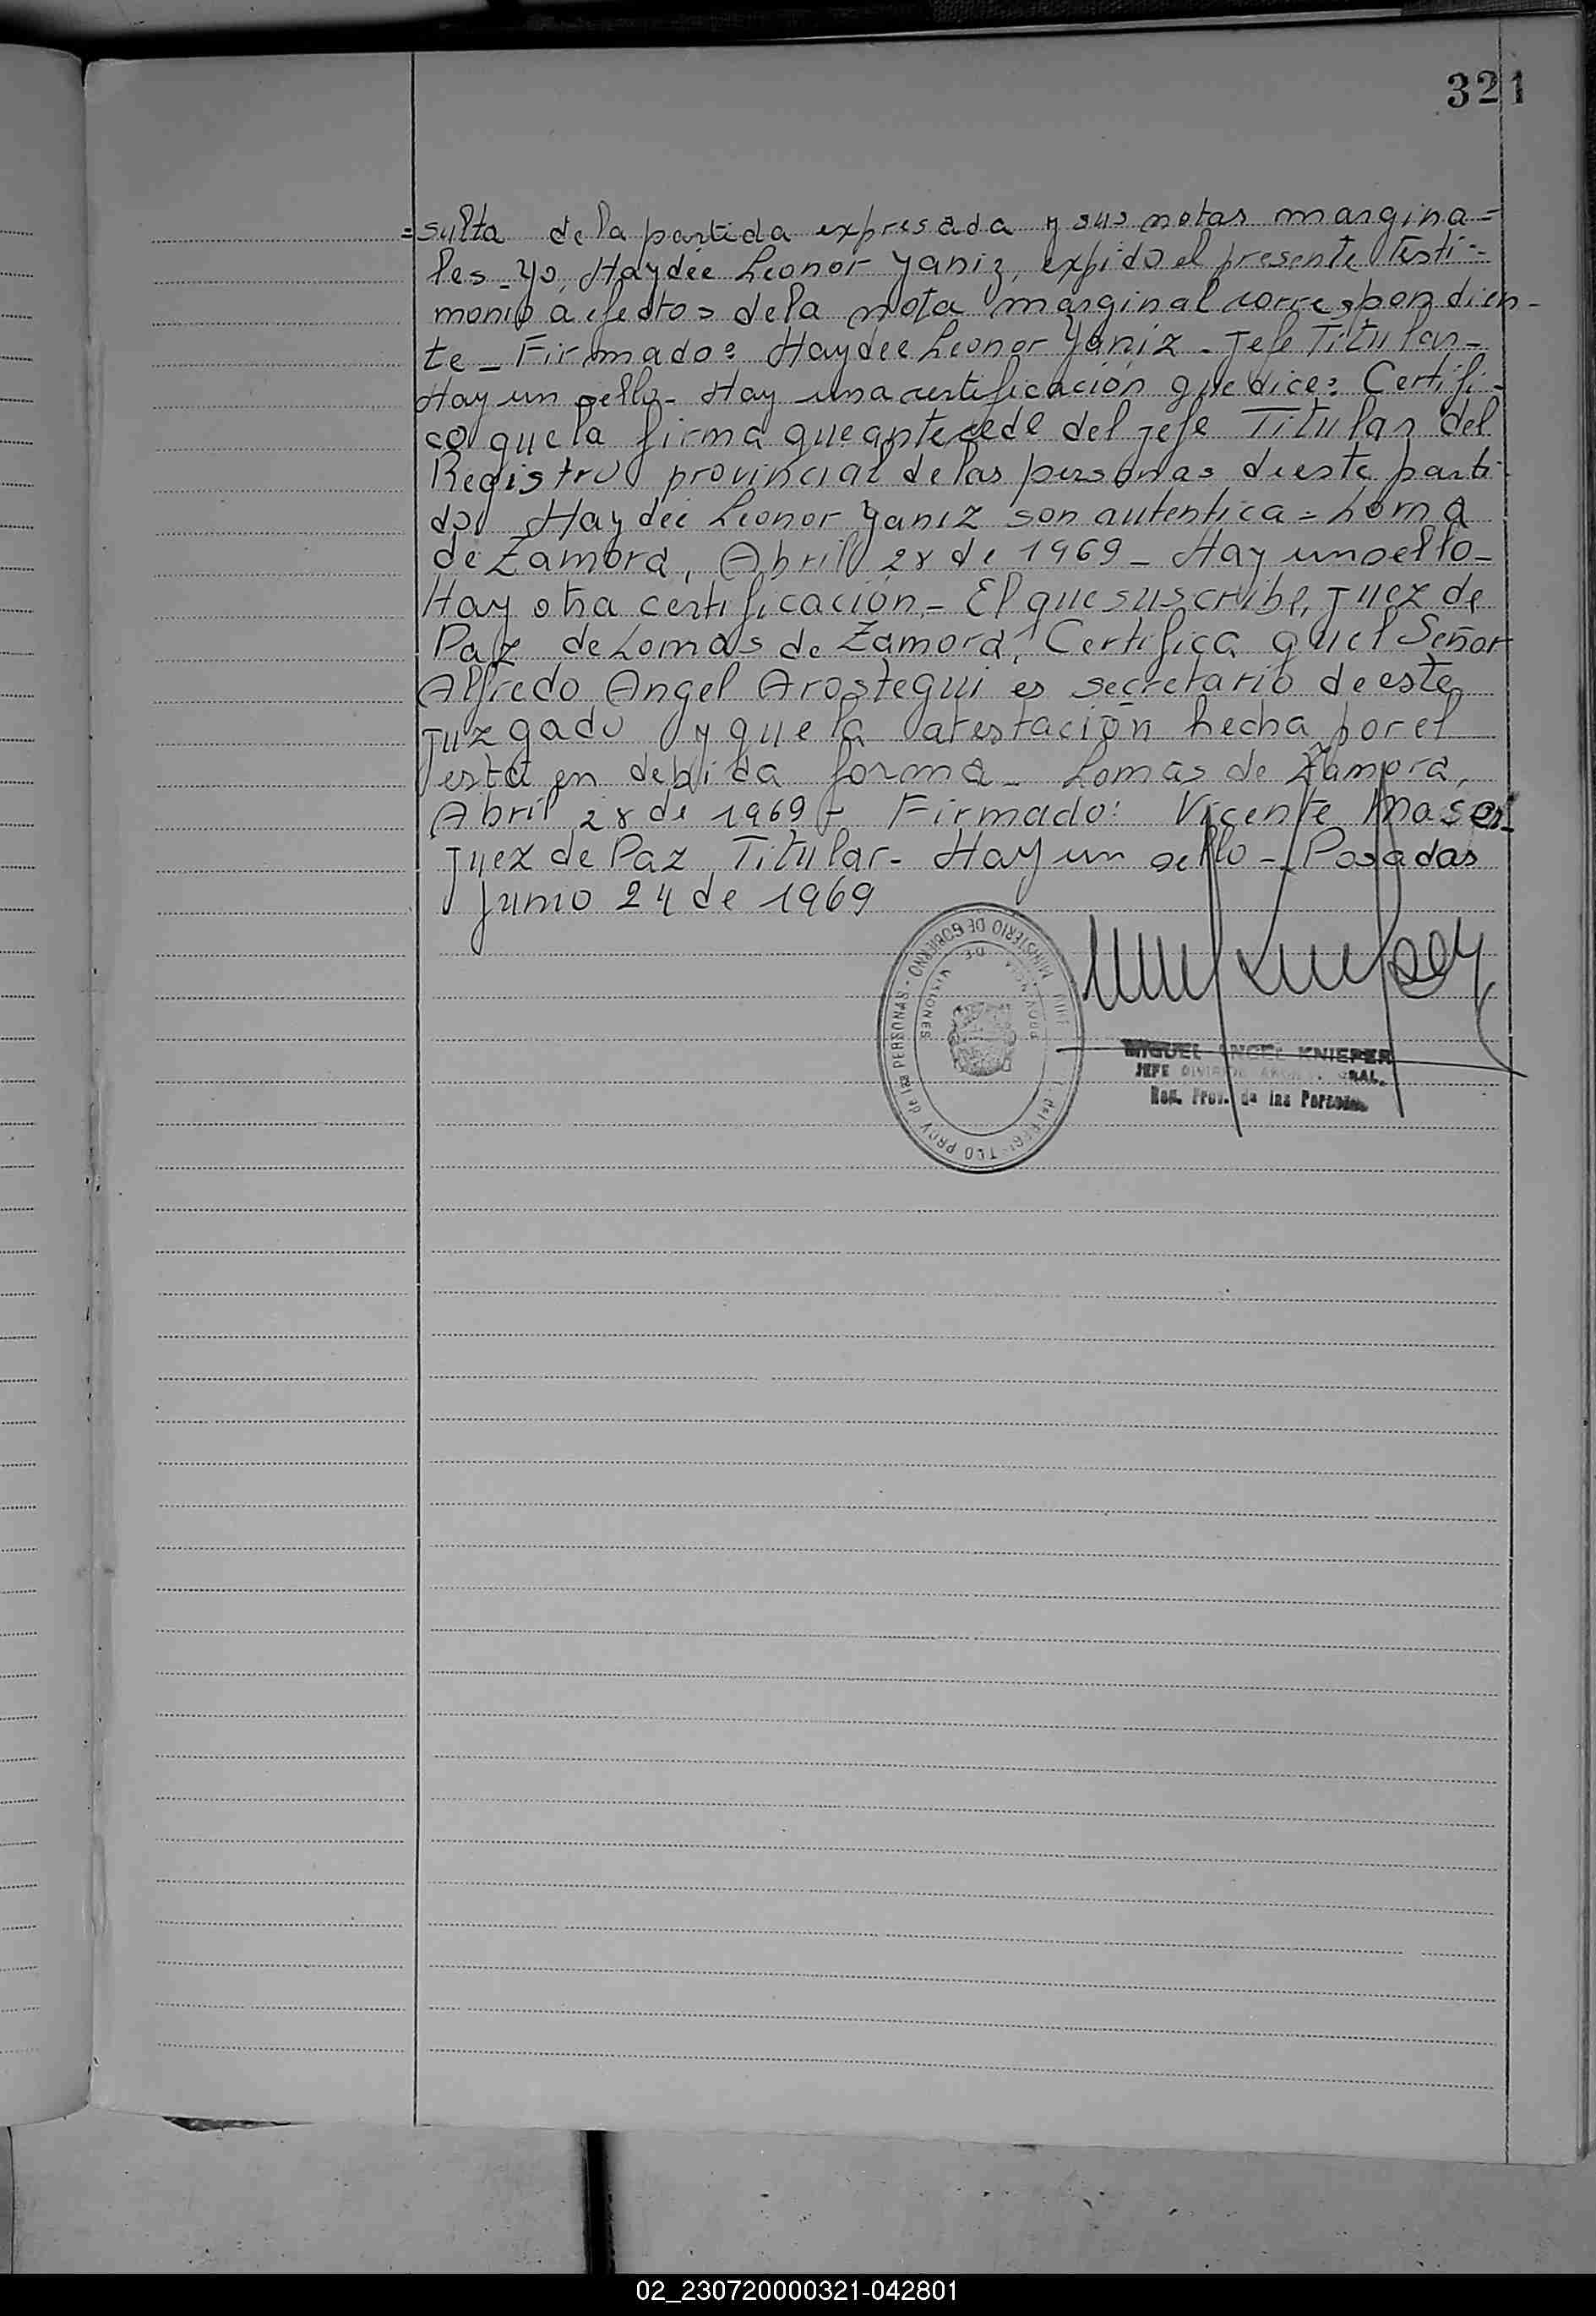 321
=sulta de la partida expresada y sus notas margina=
les_ Yo, Haydée Leonor Yaniz, expido el presente Testi=
monio a efectos de la nota marginal correspondien-
te_ Firmado: Haydee Leonor Yaniz - Jefe Titular_
Hay un sello- Hay una certificación que dice: Certifi-
co que la firma que antecede del jefe Titular del
Registro provincial de las personas de este parti-
do, Haydée Leonor Yaniz son autentica = Loma
de Zamora, Abril 28 de 1969 - Hay un sello-
Hay otra certificación.- El que suscribe, Juez de
Paz de Lomas de Zamora, Certifica qu el Señor
Alfredo Angel Arostegui es secretario de este
juzgado y que la atestación hecha por el
está en debida forma_ Lomas de Zamora,
Abril 28 de 1969 - Firmado: Vicente
Juez de Paz Titular- Hay un sello - Posadas
Junio 24 de 1969
MINISTERIO DE GOBIERNO - PROV de las PERSONAS
PROVINCIA DE MISIONES
MIGUEL ANGEL KNIEPER
JEFE DIVISION GRAL.
Reg. Prov. de las Personas
02_230720000321-042801